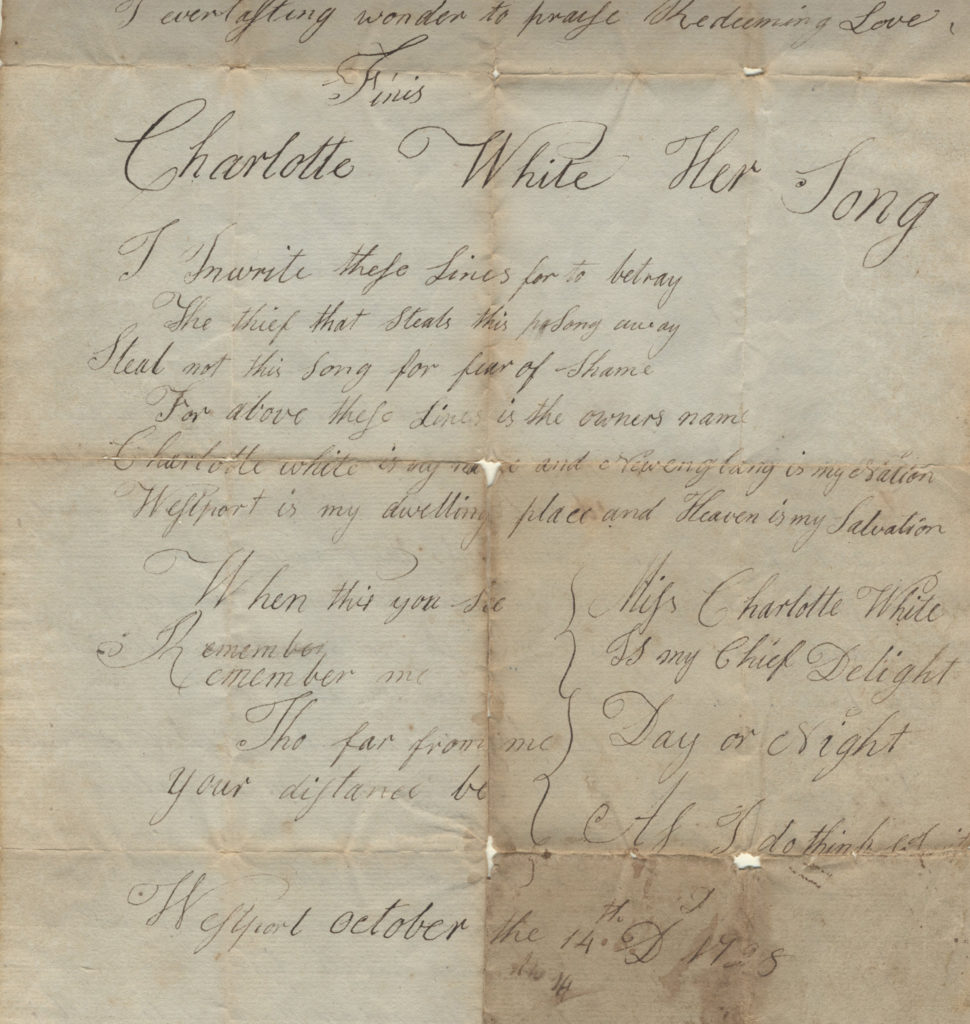 I everlasting wonder to praise Redeeming Love
Finis
Charlotte White Her Song
I Inwrite these Lines for to betray
The thief that Steals this Song away
Steal not this Song for fear of Shame
For above these Lines is the owners name
Charlotte white is my name and Newenglang is my Nation
Westport is my dwelling place and Heaven is my Salvation
When this you See
Remember
Remember me
Tho far from me
your distance be
Miss Charlotte White
Is my Chief Delight
Day or Night
As I do think
Westport October the 14th D